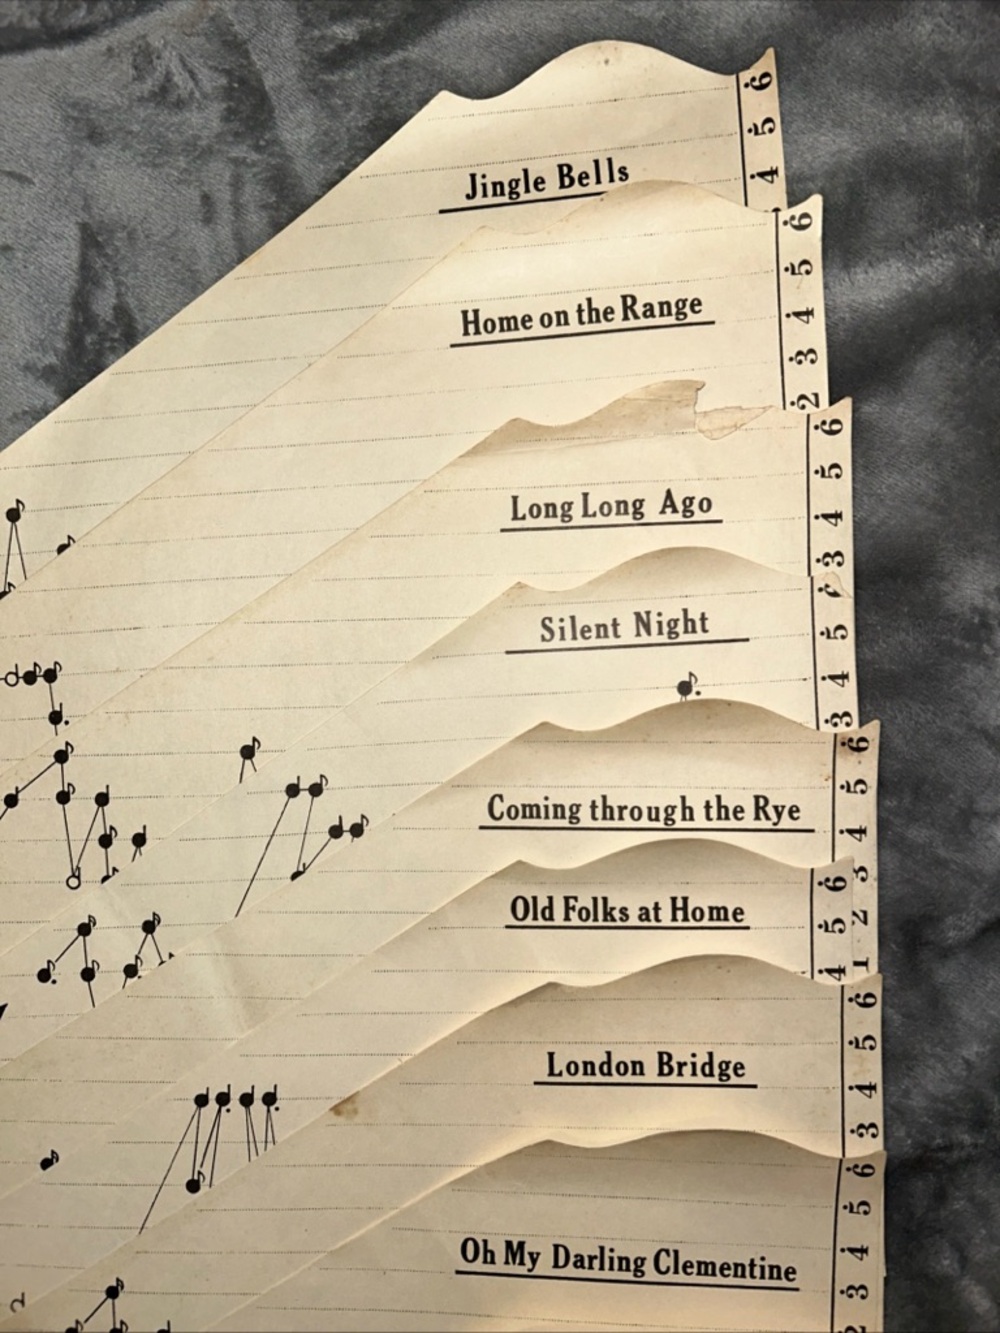 Jingle Bells
6
5
4
Home on the Range
6
5
4
3
2
Long Long Ago
6
5
4
3
Silent Night
5
4
3
Coming through the Rye
6
5
4
3
2
1
Old Folks at Home
6
5
4
London Bridge
6
5
4
3
Oh My Darling Clementine
6
5
4
3
2
2